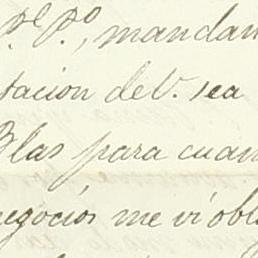 P.e P.o, mandan
tacion de V. sea
Blas para cuan
negocios me vi obl